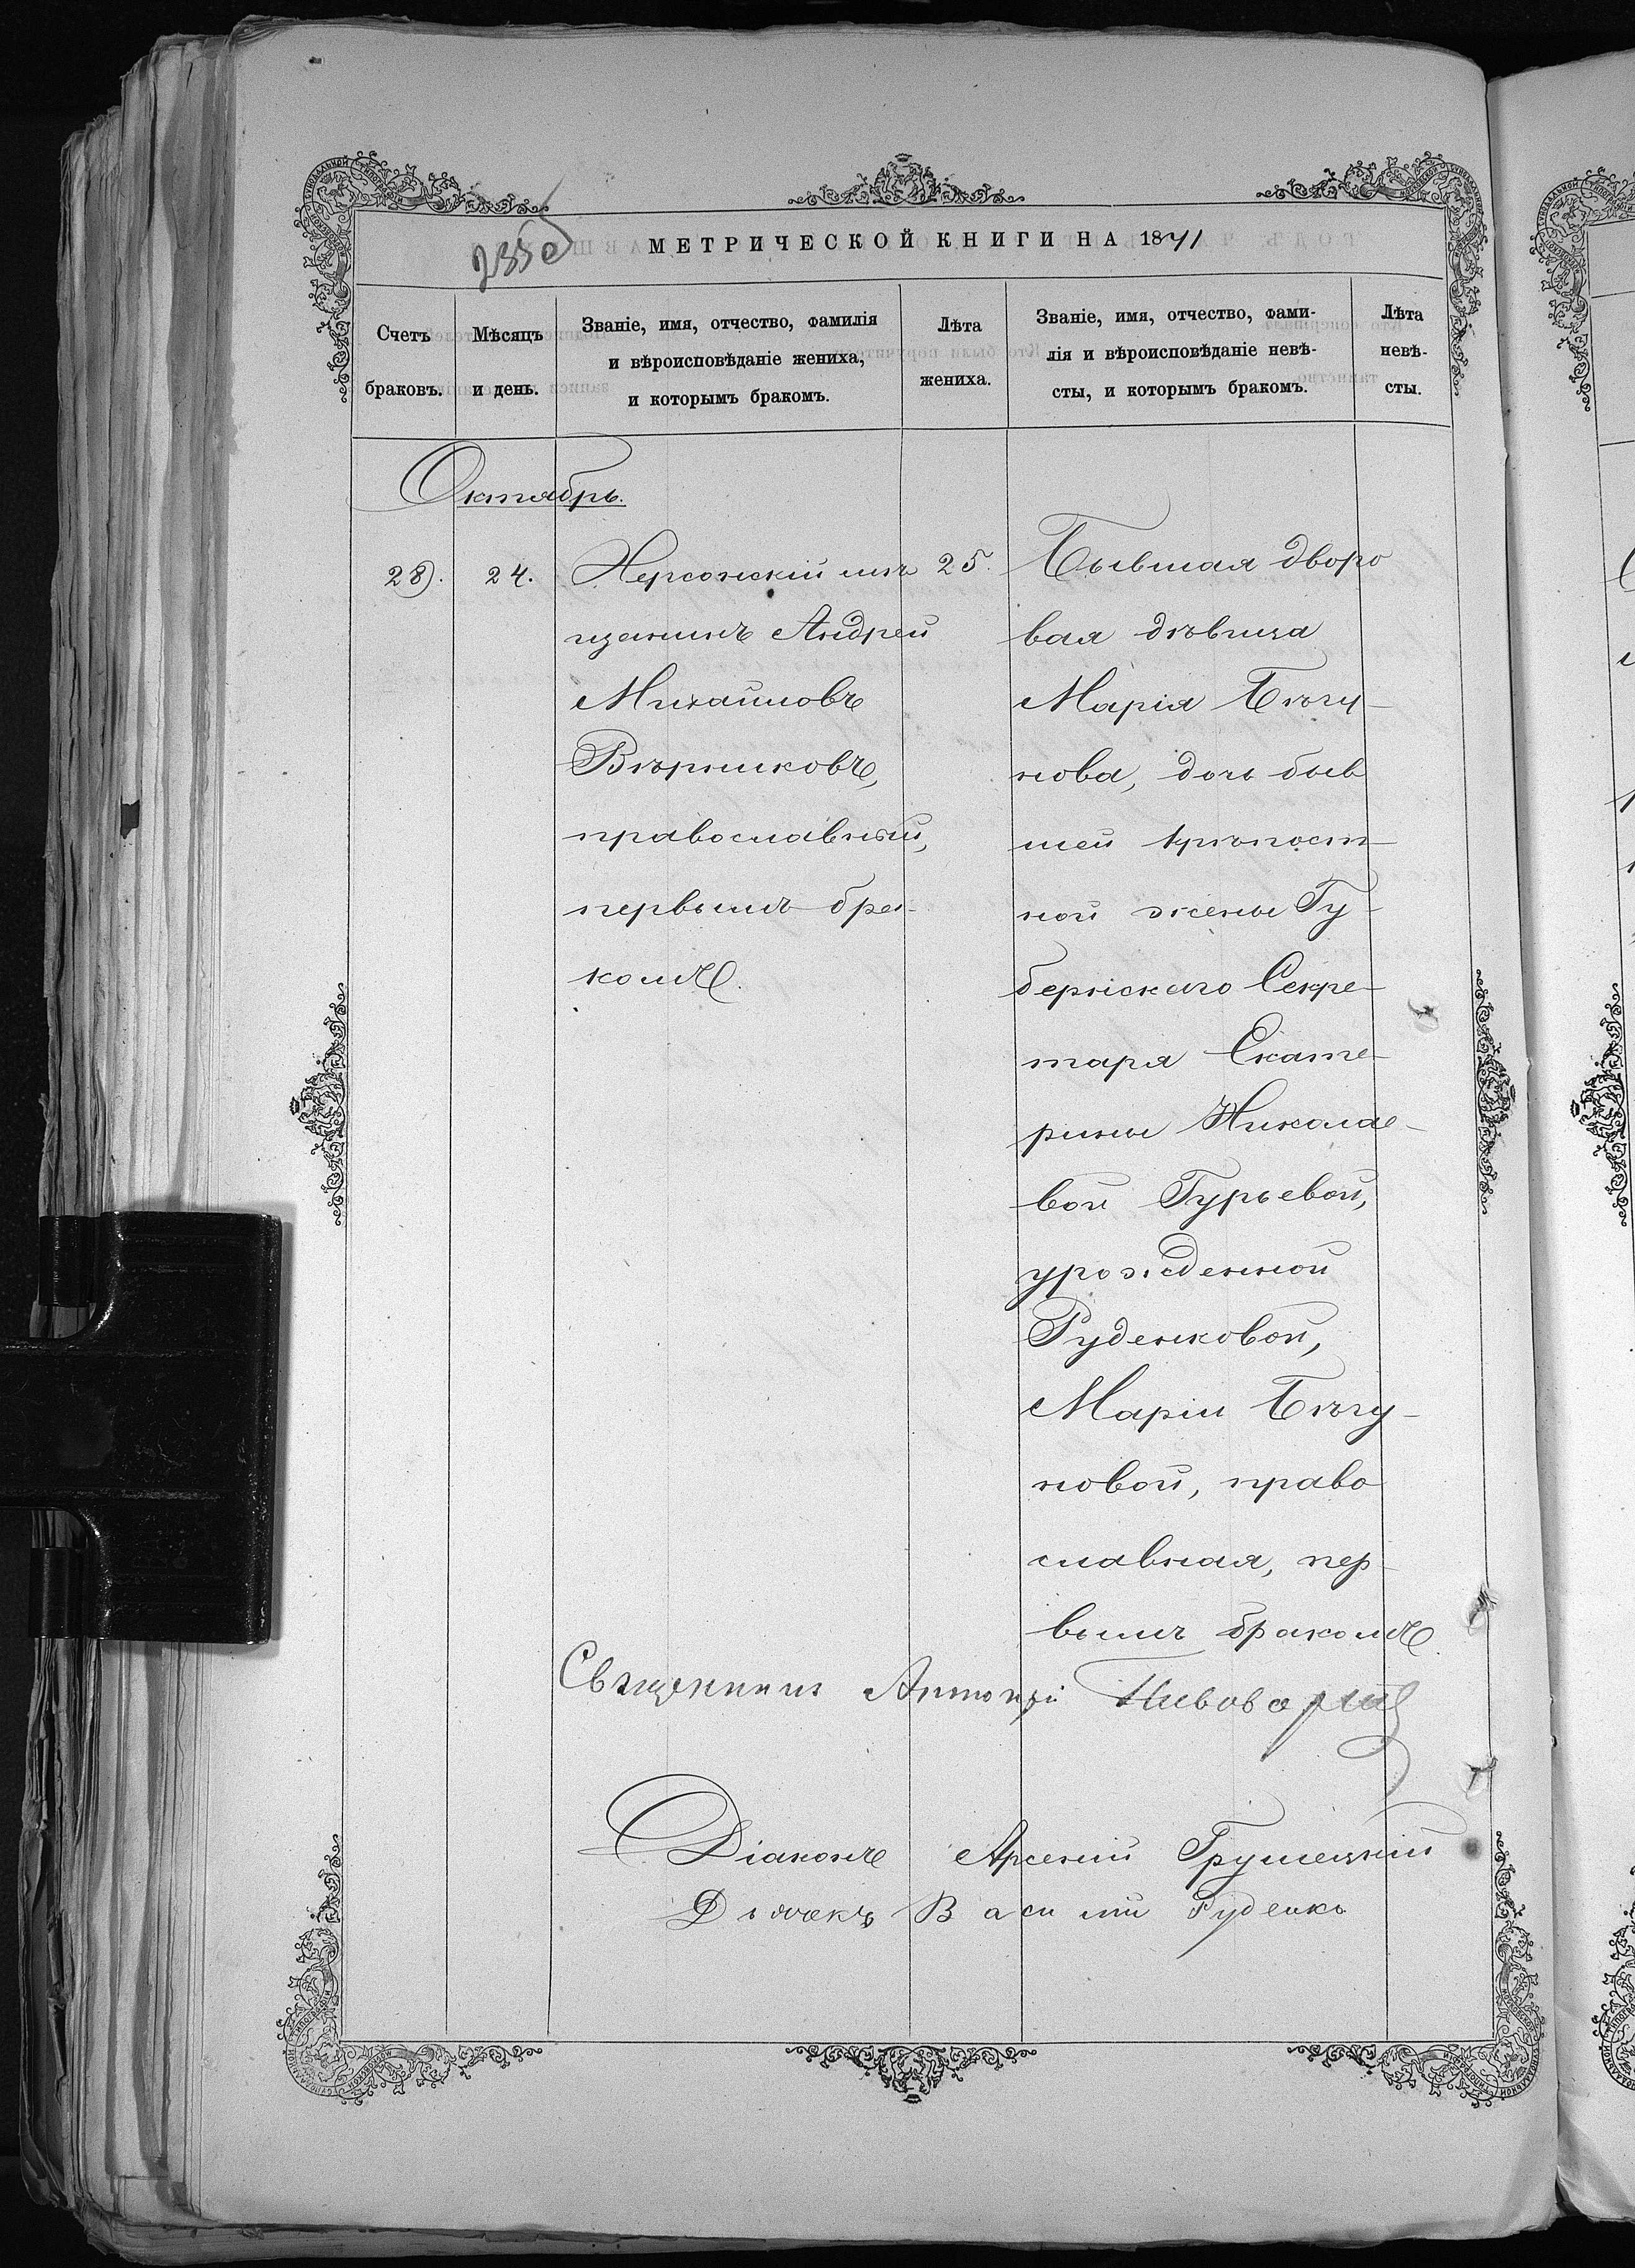 МЕТРИЧЕСКОЙ КНИГИ НА 1871
Счетъ браковъ.
Мѣсяцъ и день.
Званіе, имя, отчество, фамилія
и вѣроисповѣданіе жениха,
и которымъ бракомъ.
Лѣта
жениха.
Званіе, имя, отчество, фами-
лія и вѣроисповѣданіе невѣ-
сты, и которымъ бракомъ.
Лѣта
невѣ-
сты.
Октябрь.
28.
24.
Херсонскій мѣ
щанинъ Андрей
Михайловъ
Вѣрниковъ,
православный,
первымъ бра-
комъ.
25.
Бывшая дворо
вая дѣвица
Марія Бѣгу-
нова, дочь быв
шей крѣпост-
ной жены Гу-
бернскаго Секре-
таря Екате-
рины Николае-
вой Гурьевой,
урожденной
Руденковой,
Маріи Бѣгу-
новой, право
славная, пер-
вымъ бракомъ.
Священникъ Антоній
Діаконъ Арсеній Грушецкій
Дьячекъ Василій Руденко